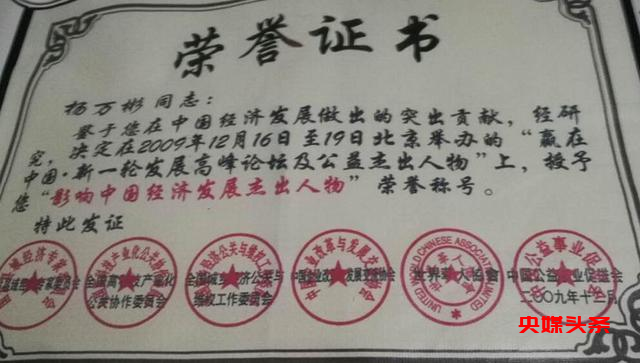 荣誉证书
杨万彬同志：
鉴于您在中国经济发展做出的突出贡献，经研
究，决定在2009年12月16日至19日北京举办的“赢在
中国·新一轮发展高峰论坛及公益杰出人物”上，授予
您“影响中国经济发展杰出人物”荣誉称号。
特此发证
全国高 产业化
公关协作委员会
全国城乡经济公关与
维权工作委员会
中国企业改革与发展 协会
世界华人协会
UNITED WORLD CHINESE ASSOCIATION LIMITED
中国公益事业促进会
二〇〇九年十二月
央媒头条